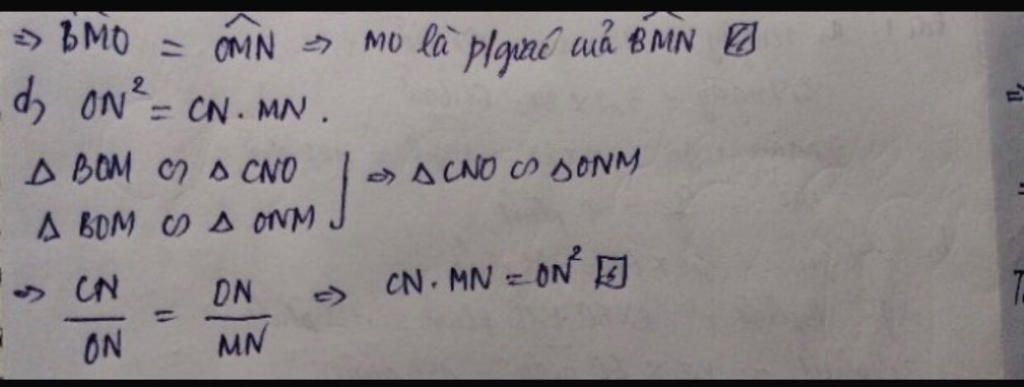 ⇒ BMO = OMN ⇒ MO là p/giác của BMN
d) ON² = CN . MN .
Δ BOM ∽ Δ CNO
Δ BOM ∽ Δ ONM } ⇒ Δ CNO ∽ Δ ONM
⇒ CN/ON = ON/MN ⇒ CN . MN = ON²